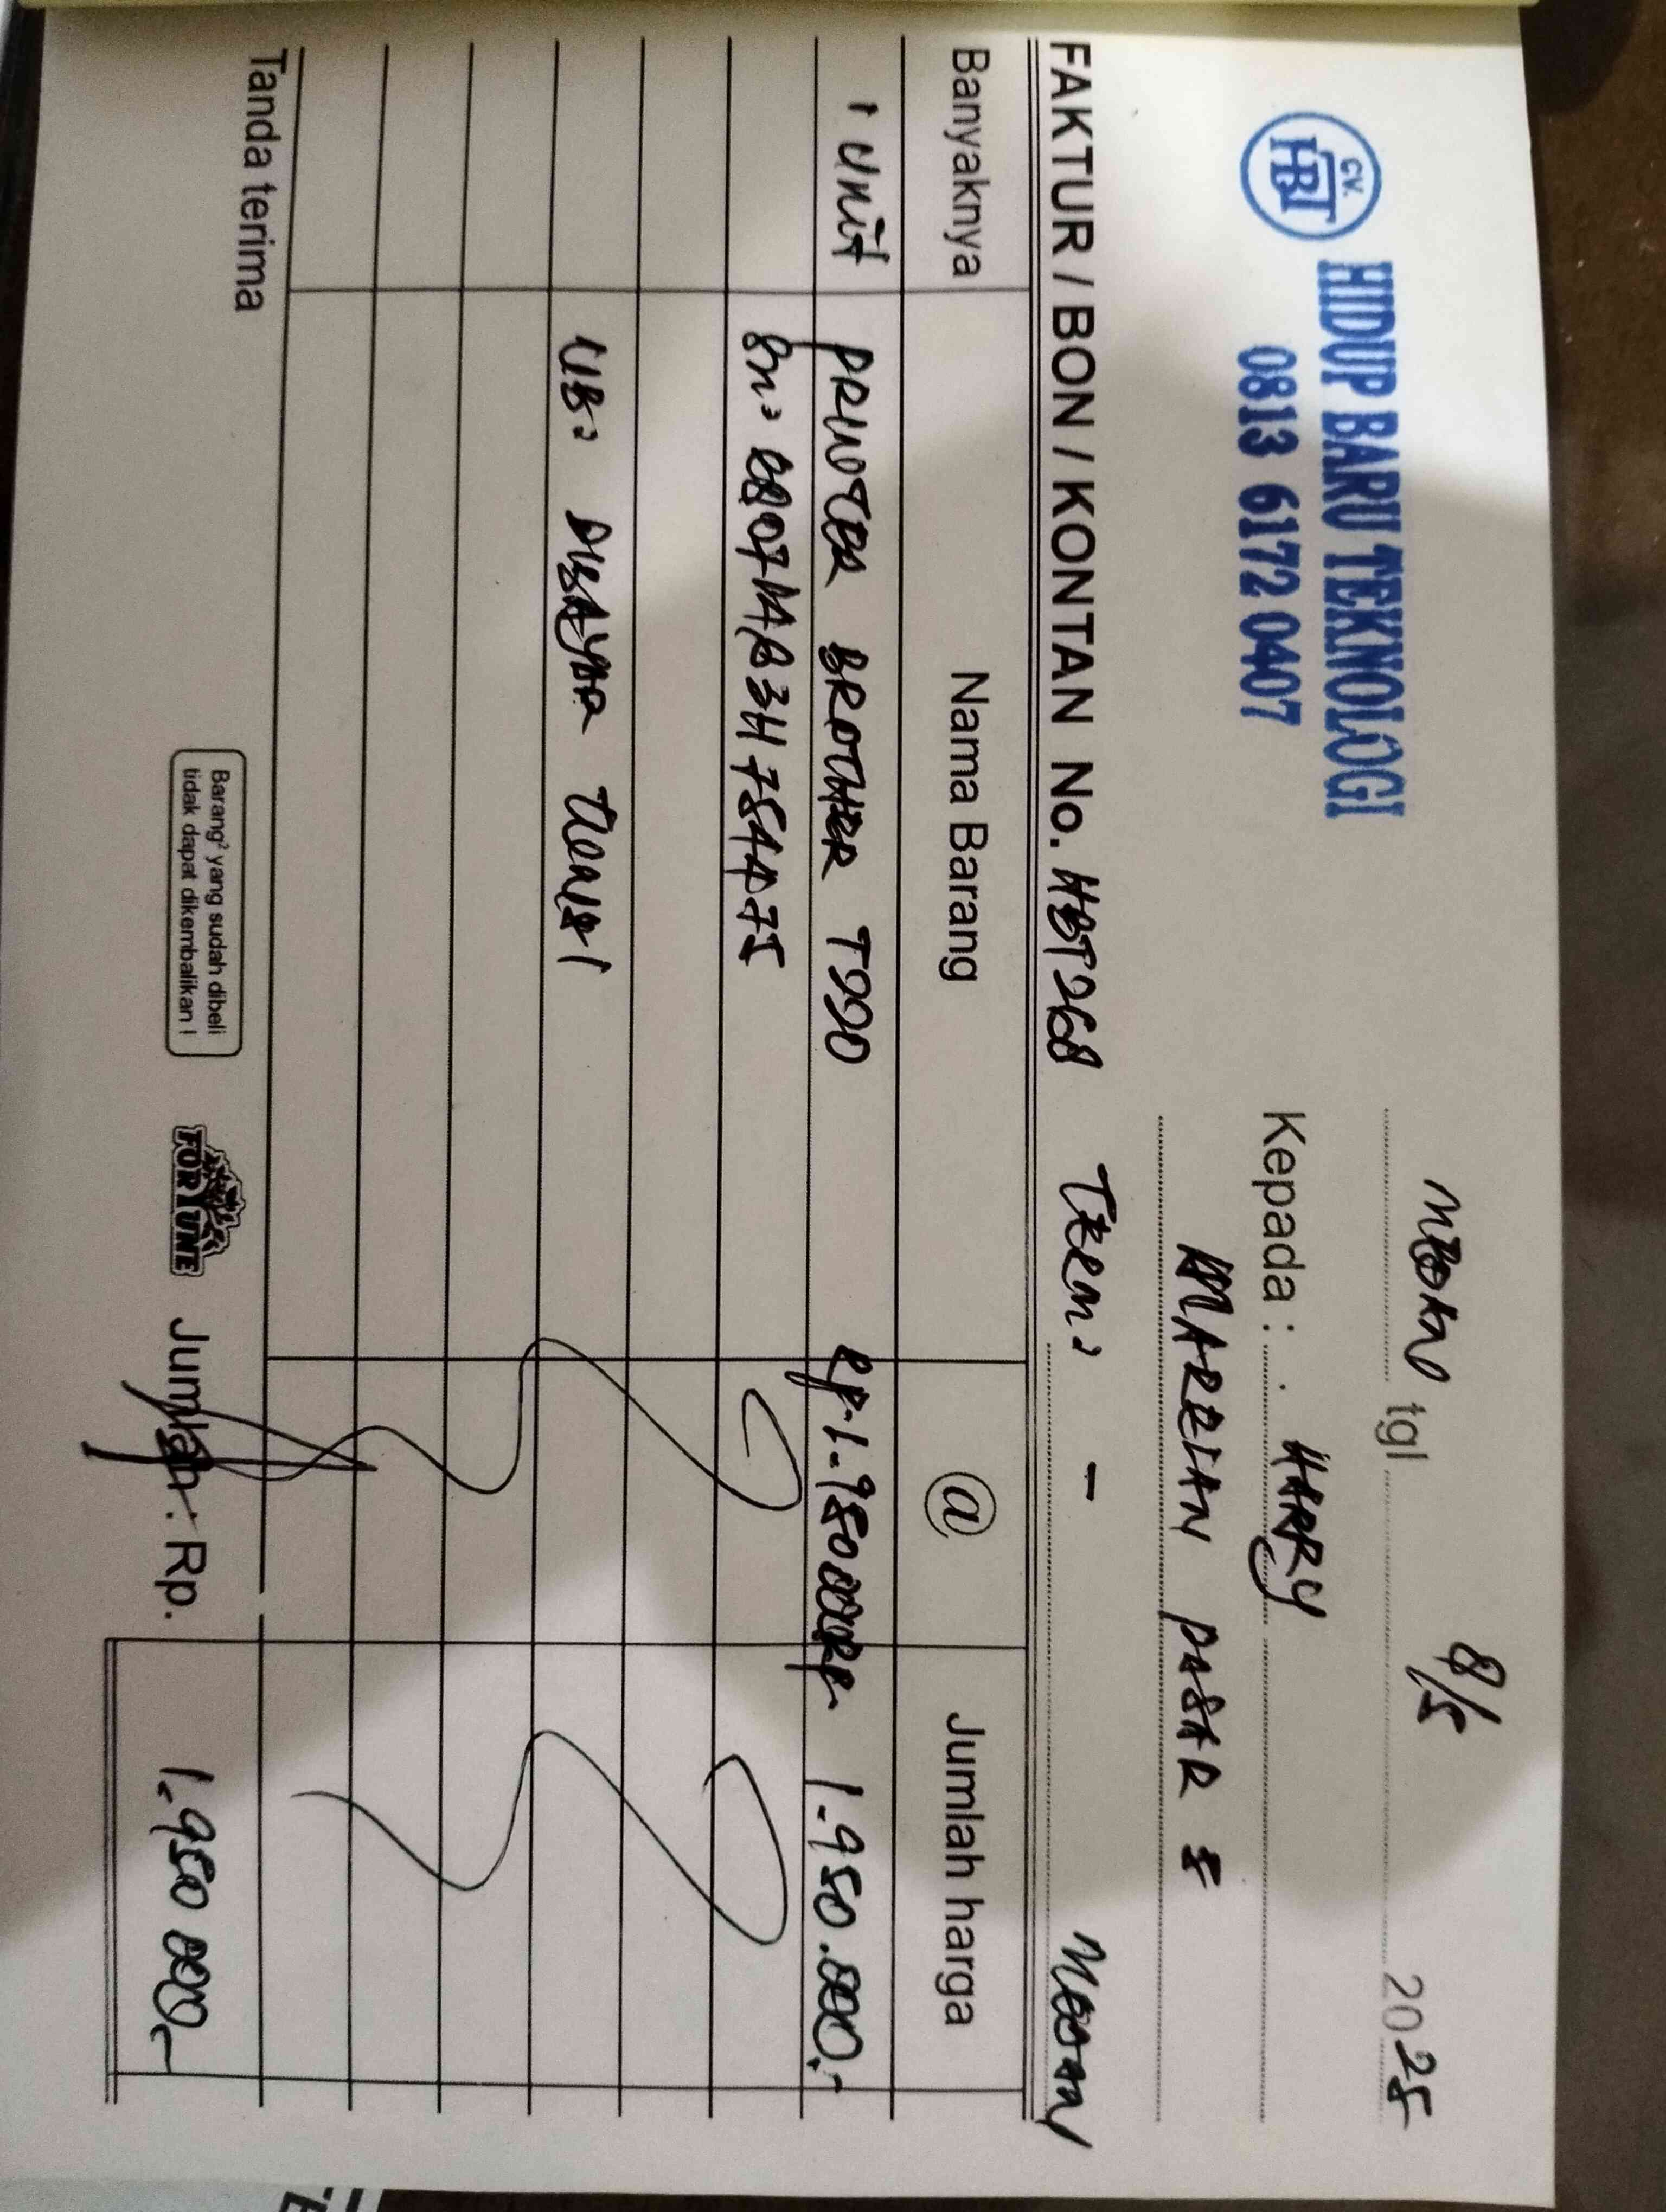 CV. HBT
HIDUP BARU TEKNOLOGI
0813 6172 0407
MEDAN tgl 8/5 2025
Kepada : HARRY
MARELAN PASAR 5
MEDAN
FAKTUR / BON / KONTAN No. HBT268 TERM : -
Banyaknya Nama Barang @ Jumlah harga
1 UNIT PRINTER BROTHER T220 Rp. 1.950.000 Rp. 1.950.000,-
SN :
NB : DIBAYAR TUNAI
Tanda terima
Barang² yang sudah dibeli
tidak dapat dikembalikan !
FORTUNE
Jumlah : Rp. 1.950.000,-